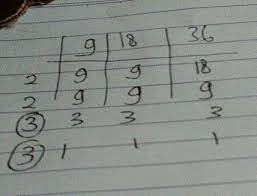 9 18 36
2 9 9 18
2 9 9 9
3 3 3 3
3 1 1 1